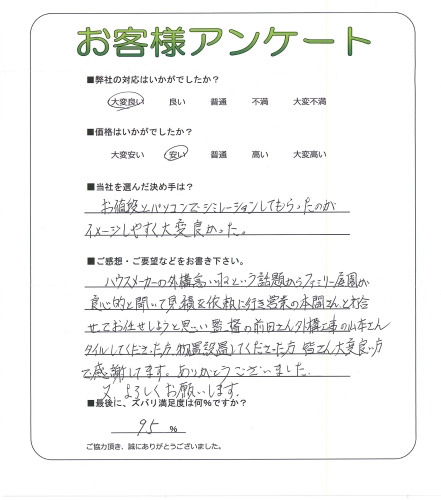 お客様アンケート
■弊社の対応はいかがでしたか？
大変良い 良い 普通 不満 大変不満
■価格はいかがでしたか？
大変安い 安い 普通 高い 大変高い
■当社を選んだ決め手は？
お値段とパソコンでシミレーションしてもらったのが
イメージしやすく大変良かった。
■ご感想・ご要望などをお書き下さい。
ハウスメーカーの外構高いねという話題からファミリー庭園が
良心的と聞いて見積を依頼に行き営業の本間さんと打合
せてお任せしようと思い監督の前田さん外構工事の山本さん
タイルしてくださった方 物置設置してくださった方 皆さん大変良い方
で感謝してます。ありがとうございました。
又、よろしくお願いします。
■最後に、ズバリ満足度は何%ですか？
95 %
ご協力頂き、誠にありがとうございました。